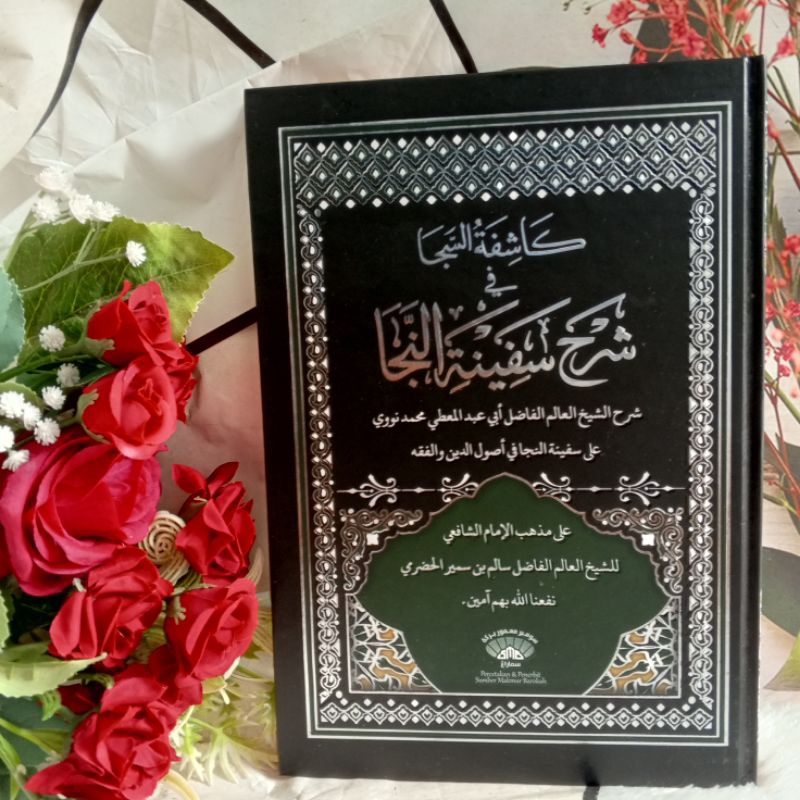 كَاشِفَةُ السَّجَا
في
شَرْح سَفِينَةِ النَّجَا
شرح الشيخ العالم الفاضل أبي عبد المعطي محمد نووي
على سفينة النجا في أصول الدين والفقه
على مذهب الإمام الشافعي
للشيخ العالم الفاضل سالم بن سمير الحضرمي
نفعنا الله بهم آمين.
سومبر معمور بركة
SMB
سماراغ
Percetakan & Penerbit
Sumber Makmur Barokah